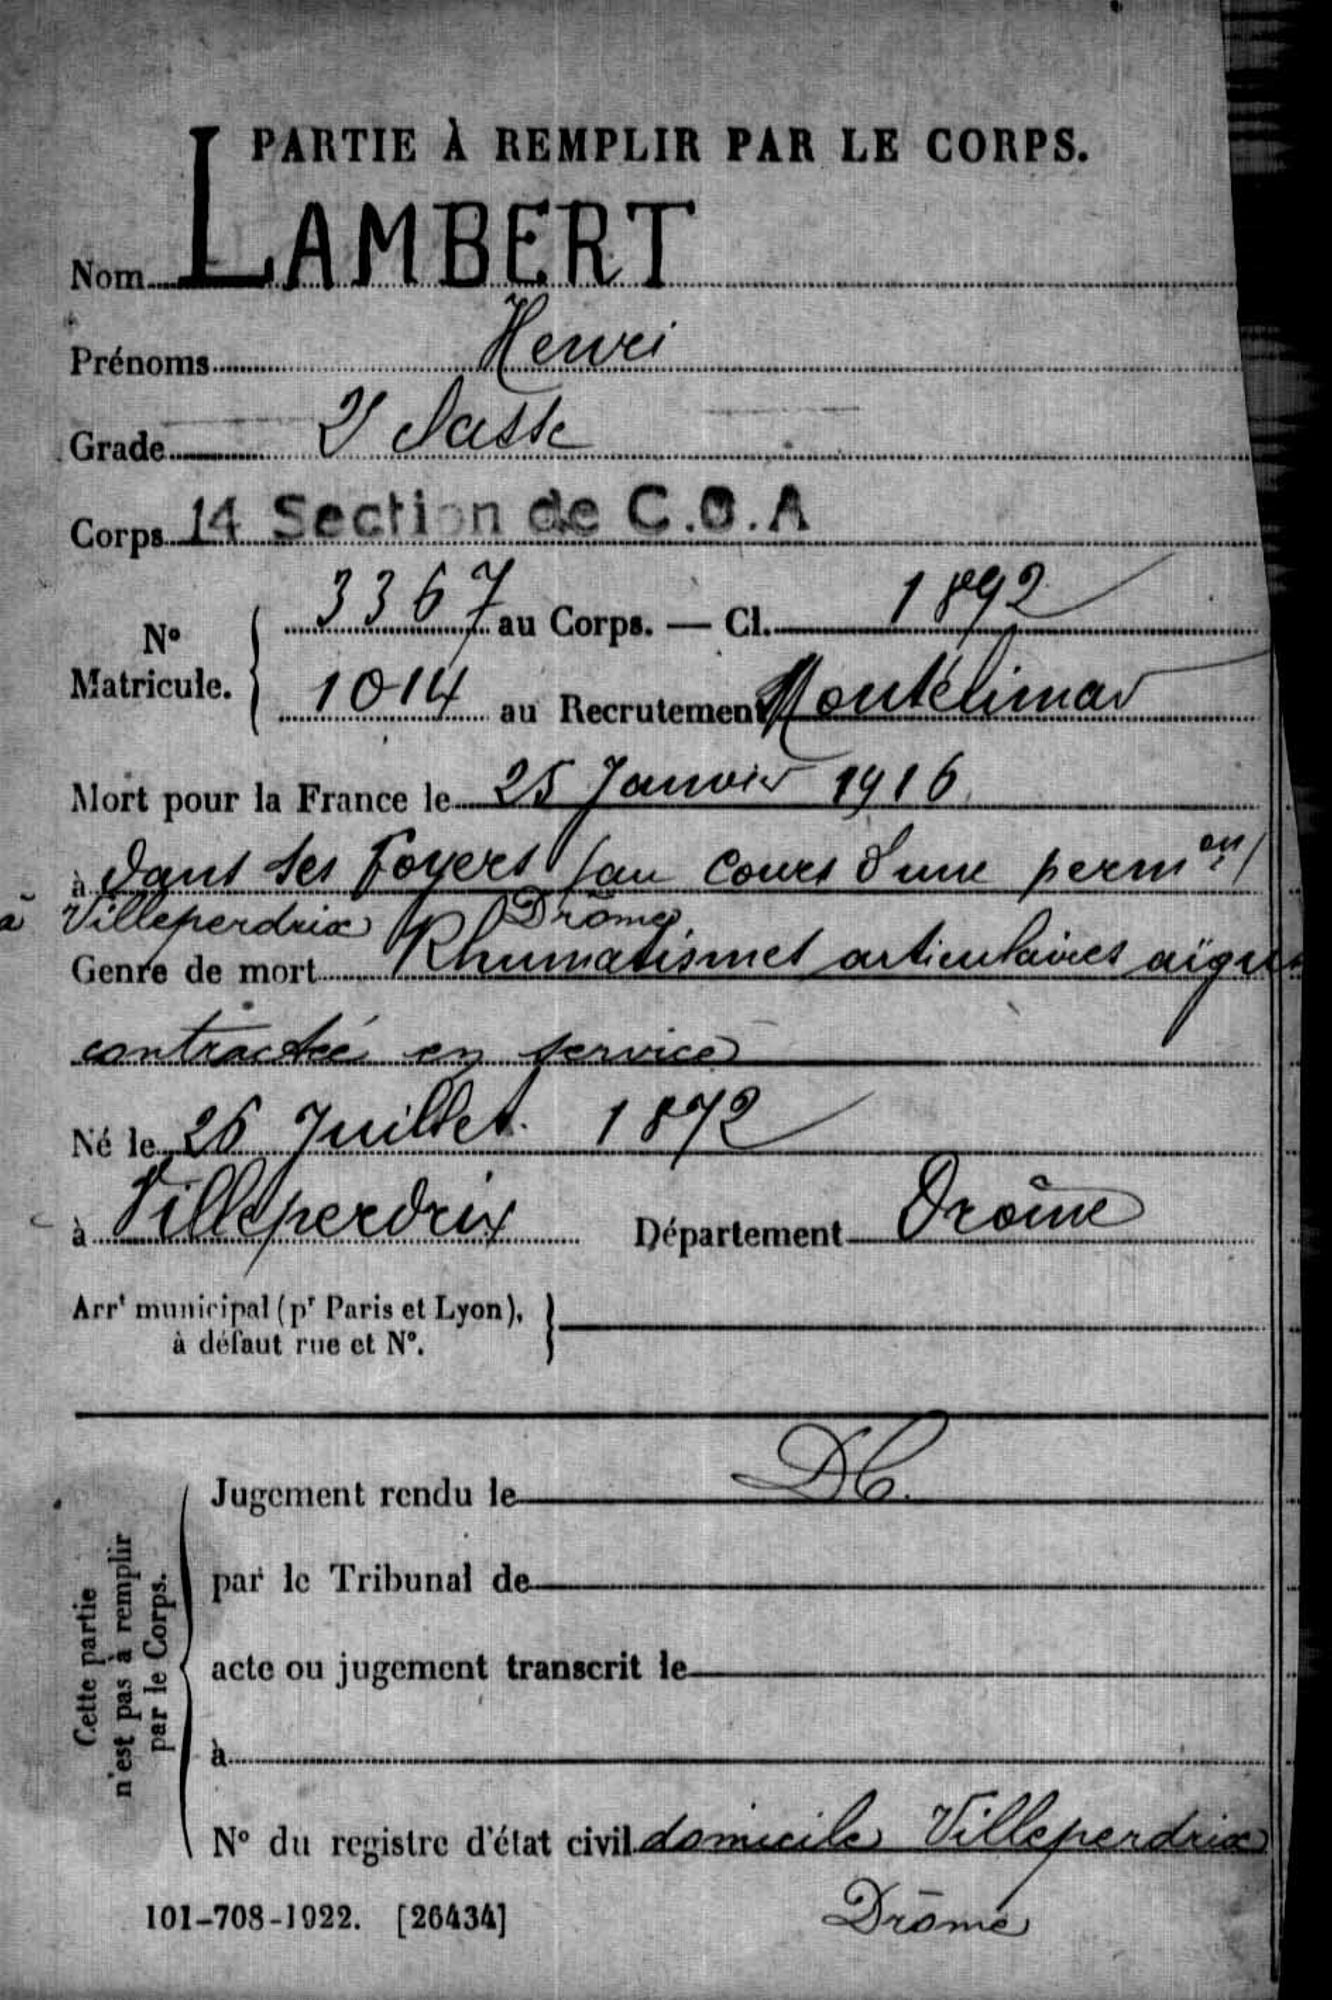 PARTIE À REMPLIR PAR LE CORPS.
Nom LAMBERT
Prénoms Henri
Grade 2 classe
Corps 14 Section de C.O.A
N° Matricule. 3367 au Corps. — Cl. 1892
1014 au Recrutement Montélimar
Mort pour la France le 25 Janvier 1916
à dans ses foyers (au cours d'une permon)
à Villeperdrix Drôme
Genre de mort Rhumatismes articulaires aïgus
contractée en service
Né le 26 Juillet 1872
à Villeperdrix Département Drôme
Arrt municipal (pr Paris et Lyon),
à défaut rue et N°.
Jugement rendu le DC.
par le Tribunal de
acte ou jugement transcrit le
à
N° du registre d'état civil domicile Villeperdrix
Drôme
Cette partie
n'est pas à remplir
par le Corps.
101-708-1922. [26434]